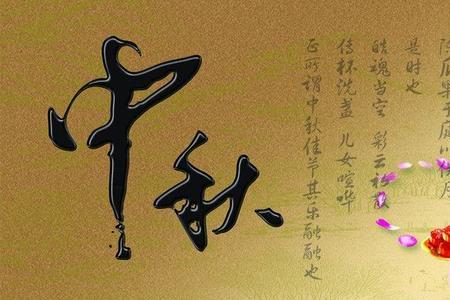 中秋
是时也
皓魂当空 彩云初散
传杯洗盏 儿女喧哗
正所谓中秋佳节其乐融融也